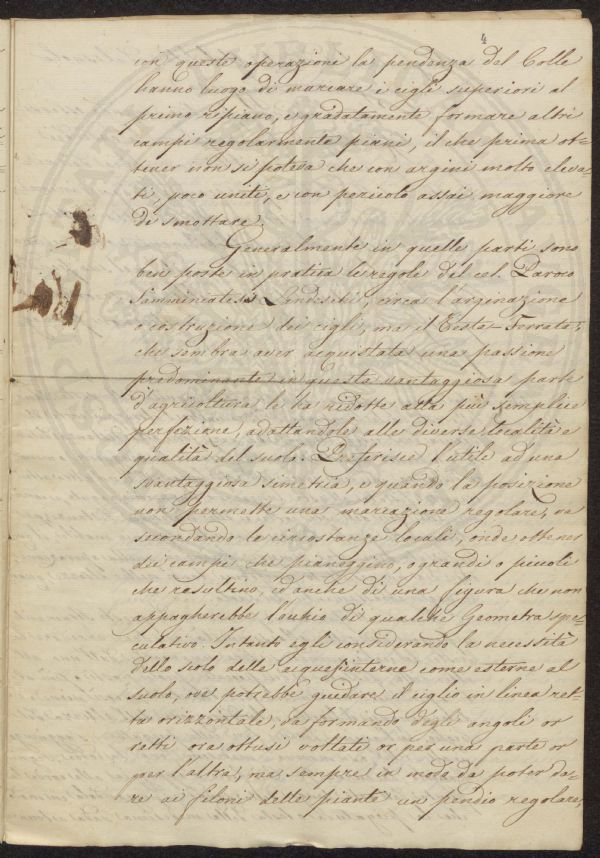 4
con queste operazione la pendenza del Colle
hanno luogo di marcare i cigli superiori al
primo ripiano, e gradatamente formare altri
campi regolarmente piani, il che prima ot=
tener non si poteva che con argini molto eleva=
ti, poco uniti, e con pericolo assai maggiore
di smottare.
Generalmente in quelle parti sono
ben poste in pratica le regole del cel. Paroco
Samminiatese Landeschi, circa l'arginazione
o costruzione dei cigli, ma il Testa-Ferrata,
che sembra aver acquistata una passione
predominante in questa vantaggiosa parte
d'agricoltura, le ha ridotte alla più semplice
perfezione, adattandole alle diverse località e
qualità del suolo. Preferisce l'utile ad una
svantaggiosa simetria, e quando la posizione
non permette una marcazione regolare, va
secondando le circostanze locali, onde ottener
dei campi che pianeggino, o grandi o piccoli
che resultino, ed anche di una figura che non
appagherebbe l'occhio di qualche Geometra spe=
culativo. Intanto egli considerando la necessità
dello scolo delle acque interne come esterne al
suolo, ove potrebbe guidare il ciglio in linea ret=
ta orizzontale, va formando degli angoli or
retti ora ottusi voltati or per una parte or
per l'altra, ma sempre in modo da poter da=
re ai filoni delle piante un pendio regolare,